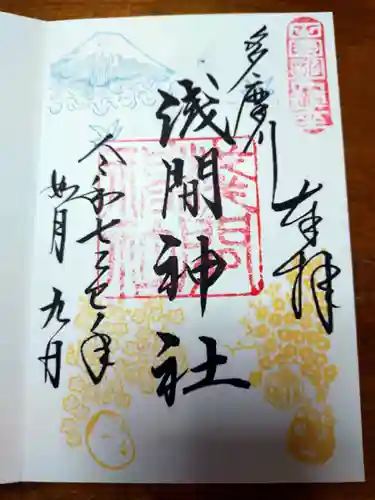 奉拝
多摩川
浅間神社
令和七乙巳年
如月九日